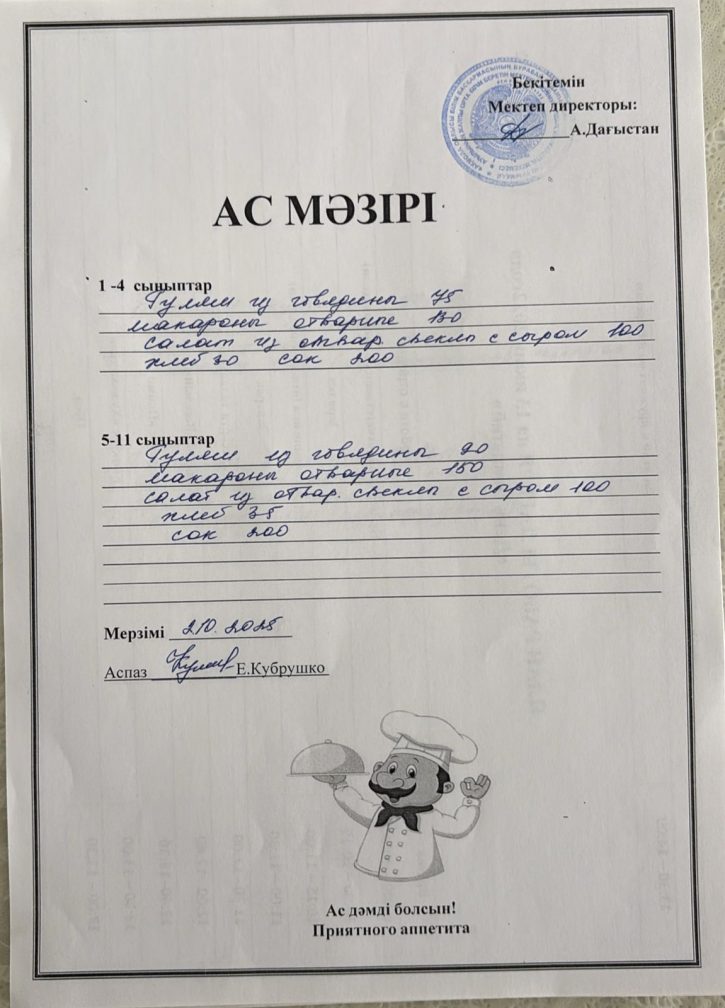 Бекітемін
Мектеп директоры:
А.Дағыстан
АС МӘЗІРІ
1 -4 сыныптар
Гуляш из говядины 75
макароны отварные 130
салат из отвар свеклы с сыром 100
хлеб 30 сок 200
5-11 сыныптар
Гуляш из говядины 90
макароны отварные 150
салат из отвар. свеклы с сыром 100
хлеб 35
сок 200
Мерзімі 2.10.2025
Аспаз Е.Кубрушко
Ас дәмді болсын!
Приятного аппетита